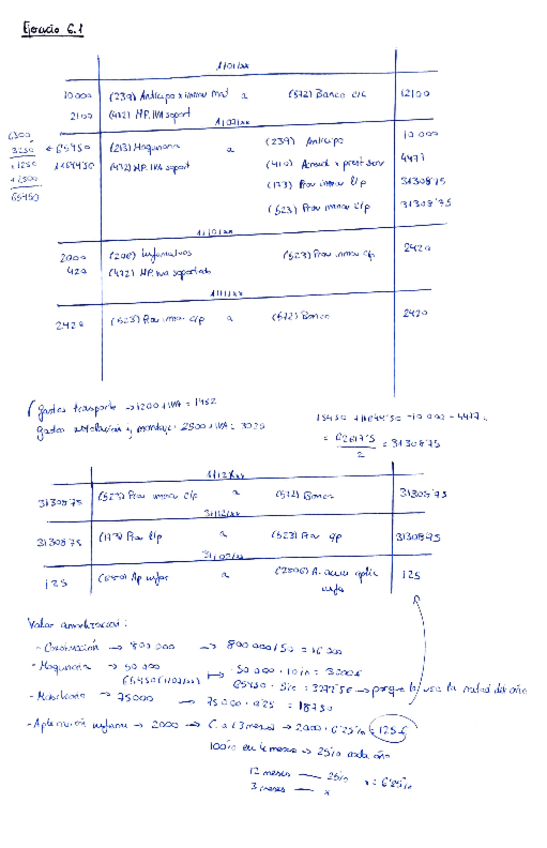 Ejercicio 6.1
1/01/xx
10000 (239) Anticipo x inmov mat a (572) Banco c/c 12100
2100 (472) HP. IVA soport
1/07/xx
65450 (213) Maquinaria a (239) Anticipo 10 000
(472) HP. IVA soport (410) Acreed x prest serv 4477
(173) Prov inmov l/p 31308'75
(523) Prov inmov c/p 31308'75
65450
1/10/xx
2000 (206) (523) Prov inmov c/p 2420
420 (472) HP. iva soportado
1/11/xx
2420 (523) Prov inmov c/p a (572) Banco 2420
gastos transporte → 1200 + IVA = 1452
gastos instalación y montaje: 2500 + IVA = 3025
= 62617'5 / 2 = 31308'75
1/12/xx
31308'75 (523) Prov inmov c/p a (572) Banco 31308'75
31/12/xx
31308'75 (173) Prov l/p a (523) Prov c/p 31308'75
125 a (2806) A. acum aplic 125
infor
Valor amortización:
- Construcción → 800 000 → 800 000/50 = 16 000
- Maquinaria → 50 000 → 50 000 · 10% =
65450 · 5% = 3272'50 → porque la usa la mitad del año
- Mobiliario → 75000 → 75 000 · 0'25 = 18750
- Aplicación informe → 2000 → (3 meses) → 2000 · 6'25% = 125€
→ 25% cada año
12 meses — 25%
3 meses — x x = 6'25%